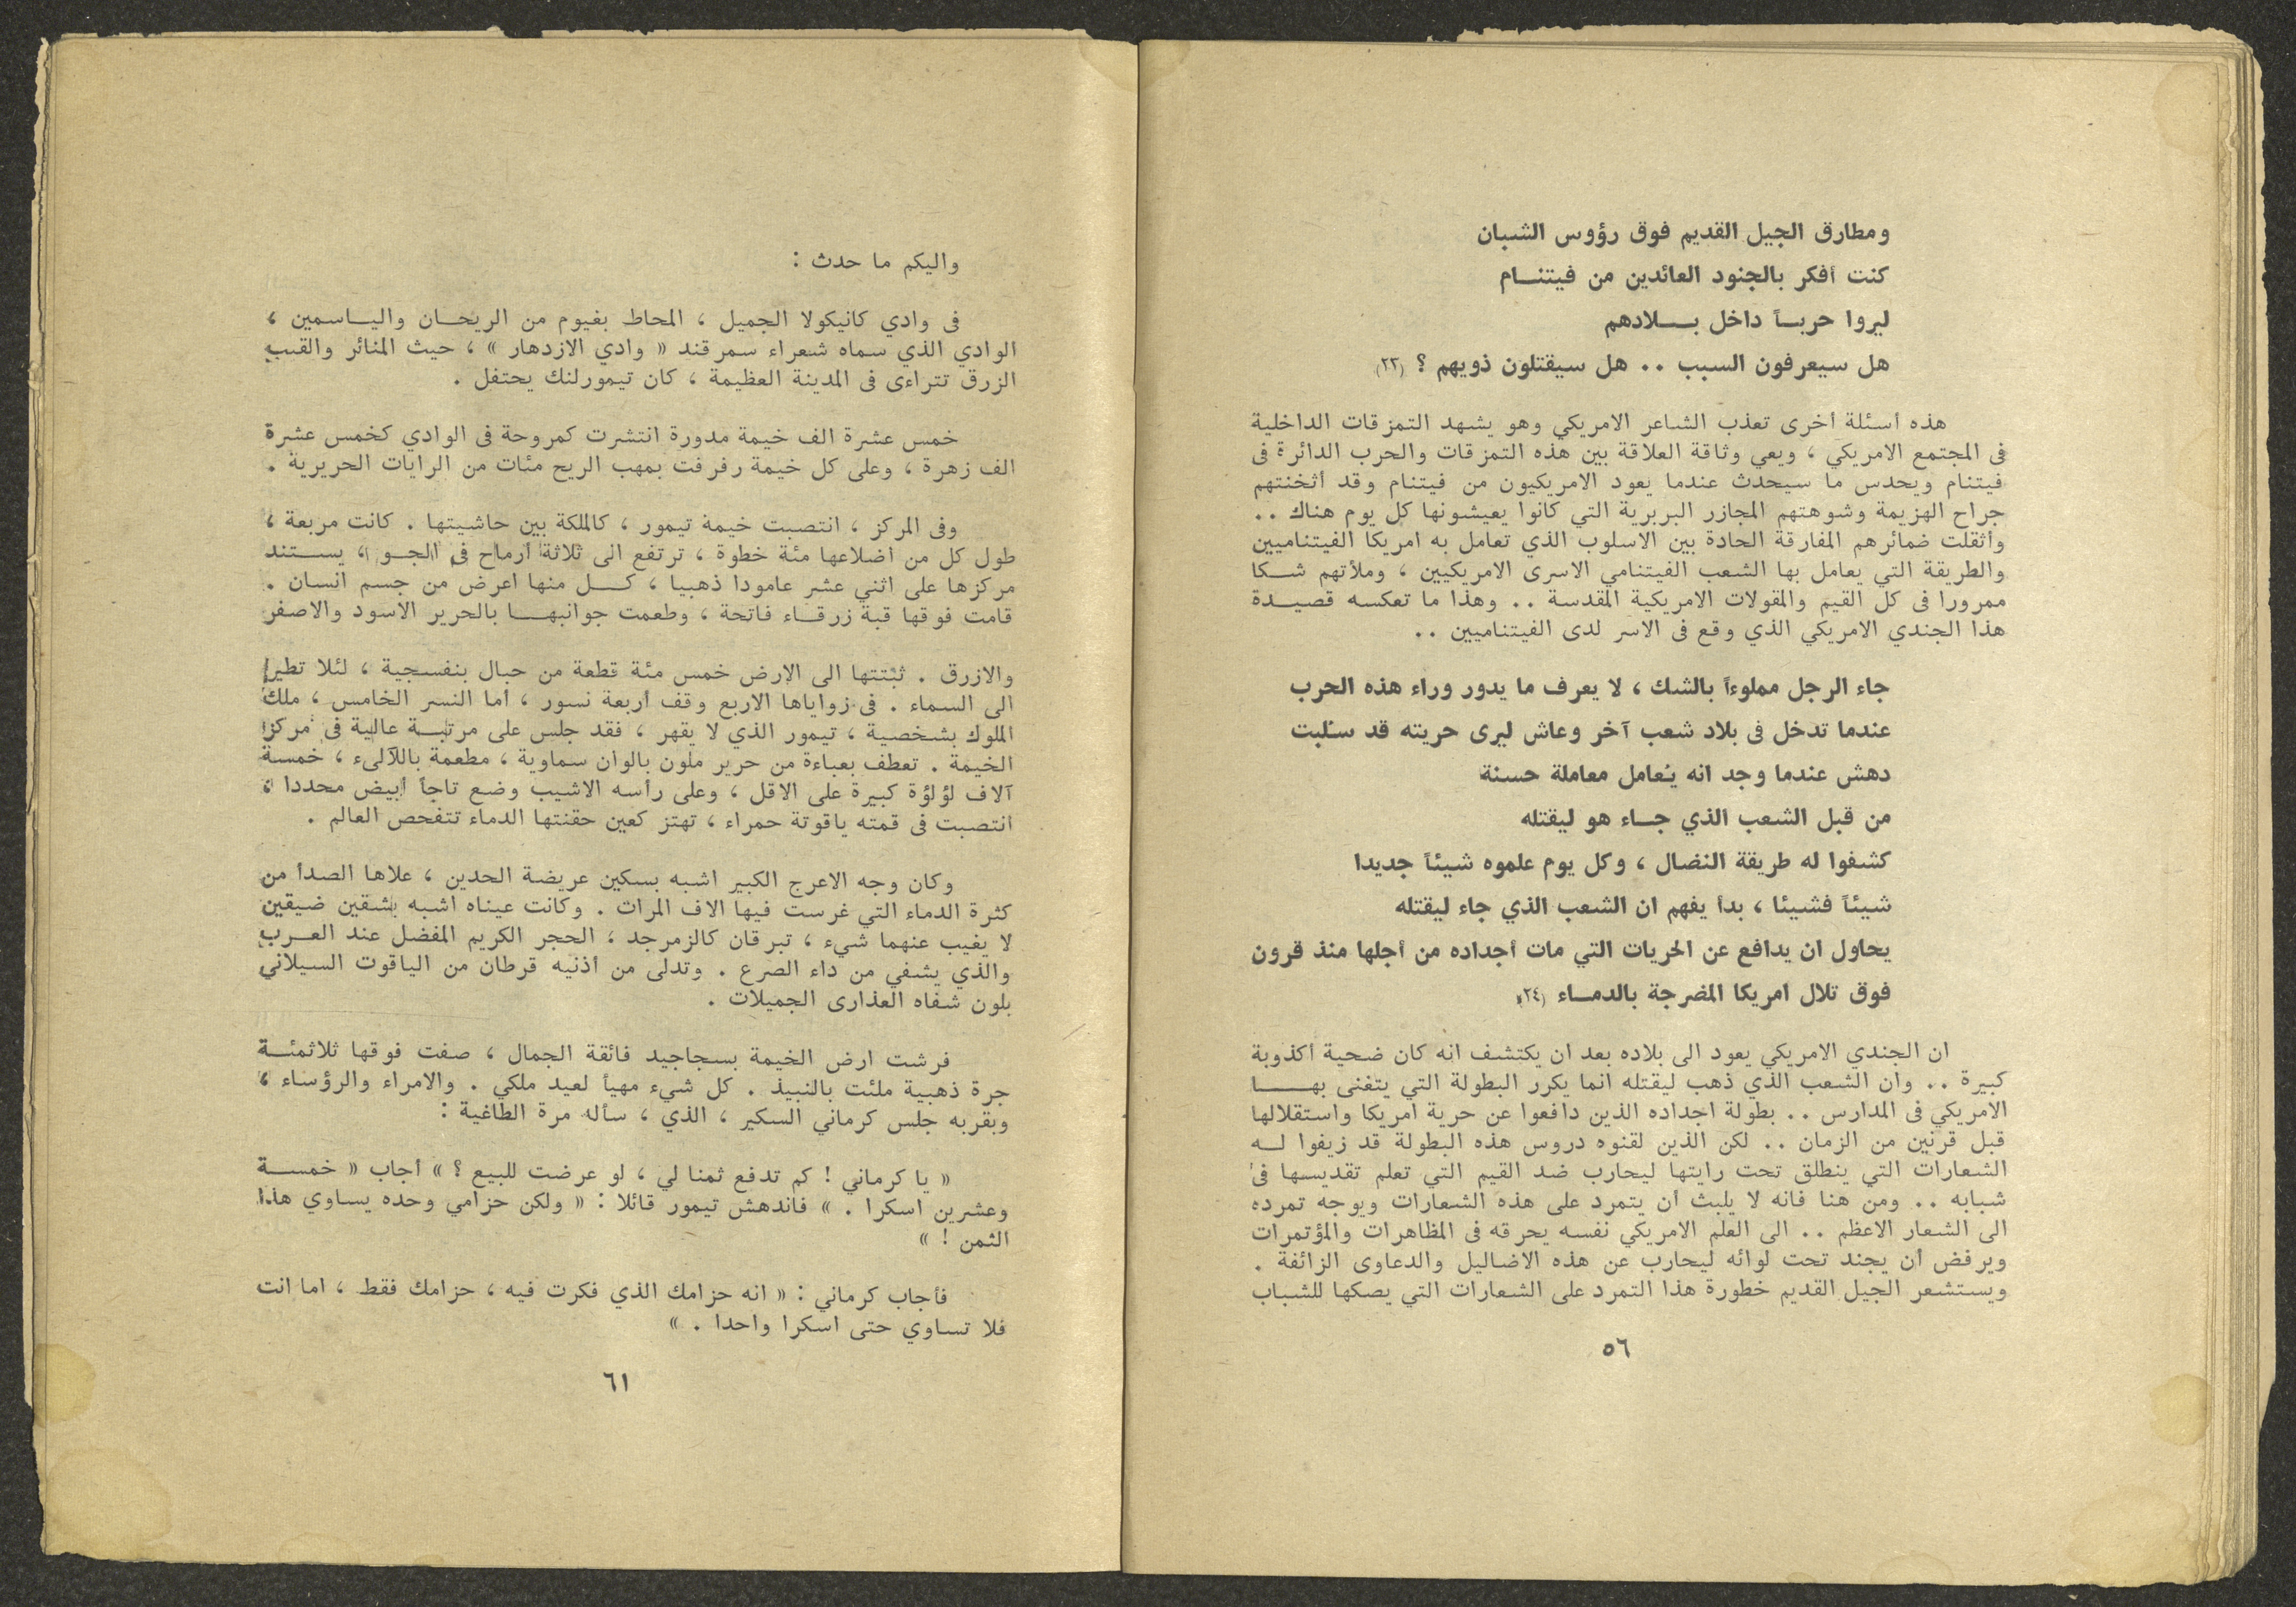 ومطارق الجيل القديم فوق رؤوس الشبان
كنت أفكر بالجنود العائدين من فيتنـام
ليروا حربـاً داخل بـلادهم
هل سيعرفون السبب .. هل سيقتلون ذويهم ؟ (٢٣)
هذه أسئلة أخرى تعذب الشاعر الامريكي وهو يشهد التمزقات الداخلية
فى المجتمع الامريكي ، ويعي وثاقة العلاقة بين هذه التمزقات والحرب الدائرة فى
فيتنام ويحدس ما سيحدث عندما يعود الامريكيون من فيتنام وقد أثخنتهم
جراح الهزيمة وشوهتهم المجازر البربرية التي كانوا يعيشونها كل يوم هناك ..
وأثقلت ضمائرهم المفارقة الحادة بين الاسلوب الذي تعامل به امريكا الفيتناميين
والطريقة التي يعامل بها الشعب الفيتنامي الاسرى الامريكيين ، وملأتهم شـكا
ممرورا فى كل القيم والمقولات الامريكية المقدسة .. وهذا ما تعكسه قصيـدة
هذا الجندي الامريكي الذي وقع فى الاسر لدى الفيتناميين ..
جاء الرجل مملوءاً بالشك ، لا يعرف ما يدور وراء هذه الحرب
عندما تدخل فى بلاد شعب آخر وعاش ليرى حريته قد سُلبت
دهش عندما وجد انه يُعامل معاملة حسنة
من قبل الشعب الذي جـاء هو ليقتله
كشفوا له طريقة النضال ، وكل يوم علموه شيئاً جديدا
شيئاً فشيئا ، بدأ يفهم ان الشعب الذي جاء ليقتله
يحاول ان يدافع عن الحريات التي مات أجداده من أجلها منذ قرون
فوق تلال امريكا المضرجة بالدمـاء (٢٤)
ان الجندي الامريكي يعود الى بلاده بعد ان يكتشف انه كان ضحية أكذوبة
كبيرة .. وان الشعب الذي ذهب ليقتله انما يكرر البطولة التي يتغنى بهـــا
الامريكي فى المدارس .. بطولة اجداده الذين دافعوا عن حرية امريكا واستقلالها
قبل قرنين من الزمان .. لكن الذين لقنوه دروس هذه البطولة قد زيفوا لـه
الشعارات التي ينطلق تحت رايتها ليحارب ضد القيم التي تعلم تقديسها فى
شبابه .. ومن هنا فانه لا يلبث أن يتمرد على هذه الشعارات ويوجه تمرده
الى الشعار الاعظم .. الى العلم الامريكي نفسه يحرقه فى المظاهرات والمؤتمرات
ويرفض أن يجند تحت لوائه ليحارب عن هذه الاضاليل والدعاوى الزائفة .
ويستشعر الجيل القديم خطورة هذا التمرد على الشعارات التي يصكها للشباب
٥٦
واليكم ما حدث :
فى وادي كانيكولا الجميل ، المحاط بغيوم من الريحـان واليـاسمين ،
الوادي الذي سماه شعراء سمرقند « وادي الازدهار » ، حيث المنائر والقبب
الزرق تتراءى فى المدينة العظيمة ، كان تيمورلنك يحتفل .
خمس عشرة الف خيمة مدورة انتشرت كمروحة فى الوادي كخمس عشرة
الف زهرة ، وعلى كل خيمة رفرفت بمهب الريح مئات من الرايات الحريرية .
وفى المركز ، انتصبت خيمة تيمور ، كالملكة بين حاشيتها . كانت مربعة ،
طول كل من اضلاعها مئة خطوة ، ترتفع الى ثلاثة ارماح فى الجـو ، يسـتند
مركزها على اثني عشر عامودا ذهبيا ، كـل منها اعرض من جسم انسان .
قامت فوقها قبة زرقـاء فاتحة ، وطعمت جوانبهـا بالحرير الاسود والاصفر
والازرق . ثبّتتها الى الارض خمس مئة قطعة من حبال بنفسجية ، لئلا تطير
الى السماء . فى زواياها الاربع وقف أربعة نسور ، أما النسر الخامس ، ملك
الملوك بشخصية ، تيمور الذي لا يقهر ، فقد جلس على مرتبـة عالية فى مركز
الخيمة . تعطف بعباءة من حرير ملون بالوان سماوية ، مطعمة باللآلىء ، خمسة
آلاف لؤلؤة كبيرة على الاقل ، وعلى رأسه الاشيب وضع تاجاً أبيض محددا ،
انتصبت فى قمته ياقوتة حمراء ، تهتز كعين حقنتها الدماء تتفحص العالم .
وكان وجه الاعرج الكبير اشبه بسكين عريضة الحدين ، علاها الصدأ من
كثرة الدماء التي غرست فيها الاف المرات . وكانت عيناه اشبه بشقين ضيقين
لا يغيب عنهما شيء ، تبرقان كالزمرجد ، الحجر الكريم المفضل عند العـرب
والذي يشفي من داء الصرع . وتدلى من أذنيه قرطان من الياقوت السيلاني
بلون شفاه العذارى الجميلات .
فرشت ارض الخيمة بسجاجيد فائقة الجمال ، صفت فوقها ثلاثمئـة
جرة ذهبية ملئت بالنبيذ . كل شيء مهيأ لعيد ملكي . والامراء والرؤساء ،
وبقربه جلس كرماني السكير ، الذي ، سأله مرة الطاغية :
« يا كرماني ! كم تدفع ثمنا لي ، لو عرضت للبيع ؟ » أجاب « خمسـة
وعشرين اسكرا . » فاندهش تيمور قائلا : « ولكن حزامي وحده يساوي هذا
الثمن ! »
فأجاب كرماني : « انه حزامك الذي فكرت فيه ، حزامك فقط ، اما انت
فلا تساوي حتى اسكرا واحدا . »
٦١